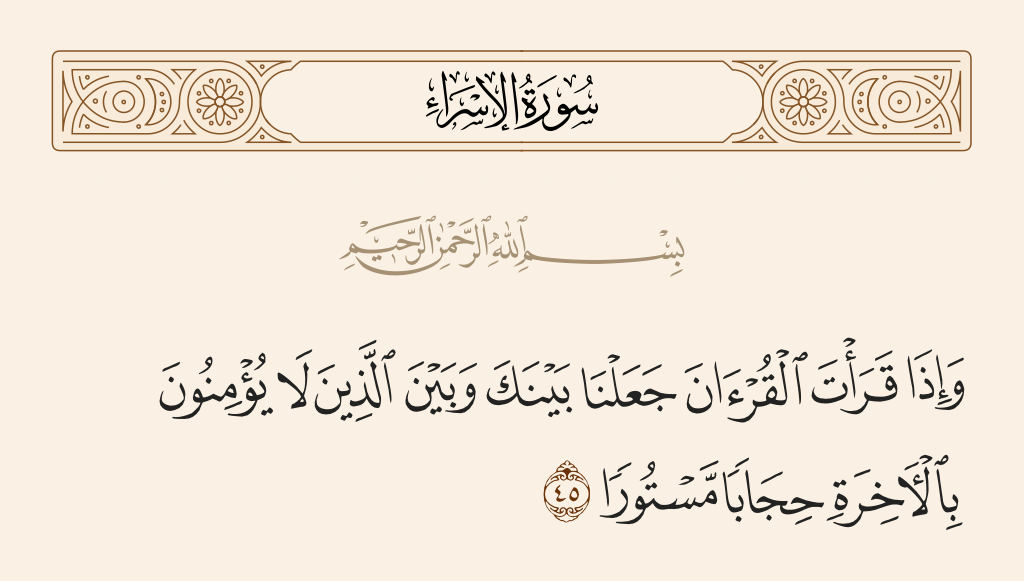 سُورَةُ الإِسْرَاءِ
بِسْمِ ٱللَّهِ ٱلرَّحْمَٰنِ ٱلرَّحِيمِ
وَإِذَا قَرَأْتَ ٱلْقُرْءَانَ جَعَلْنَا بَيْنَكَ وَبَيْنَ ٱلَّذِينَ لَا يُؤْمِنُونَ
بِٱلْأَخِرَةِ حِجَابًا مَّسْتُورًا ٤٥